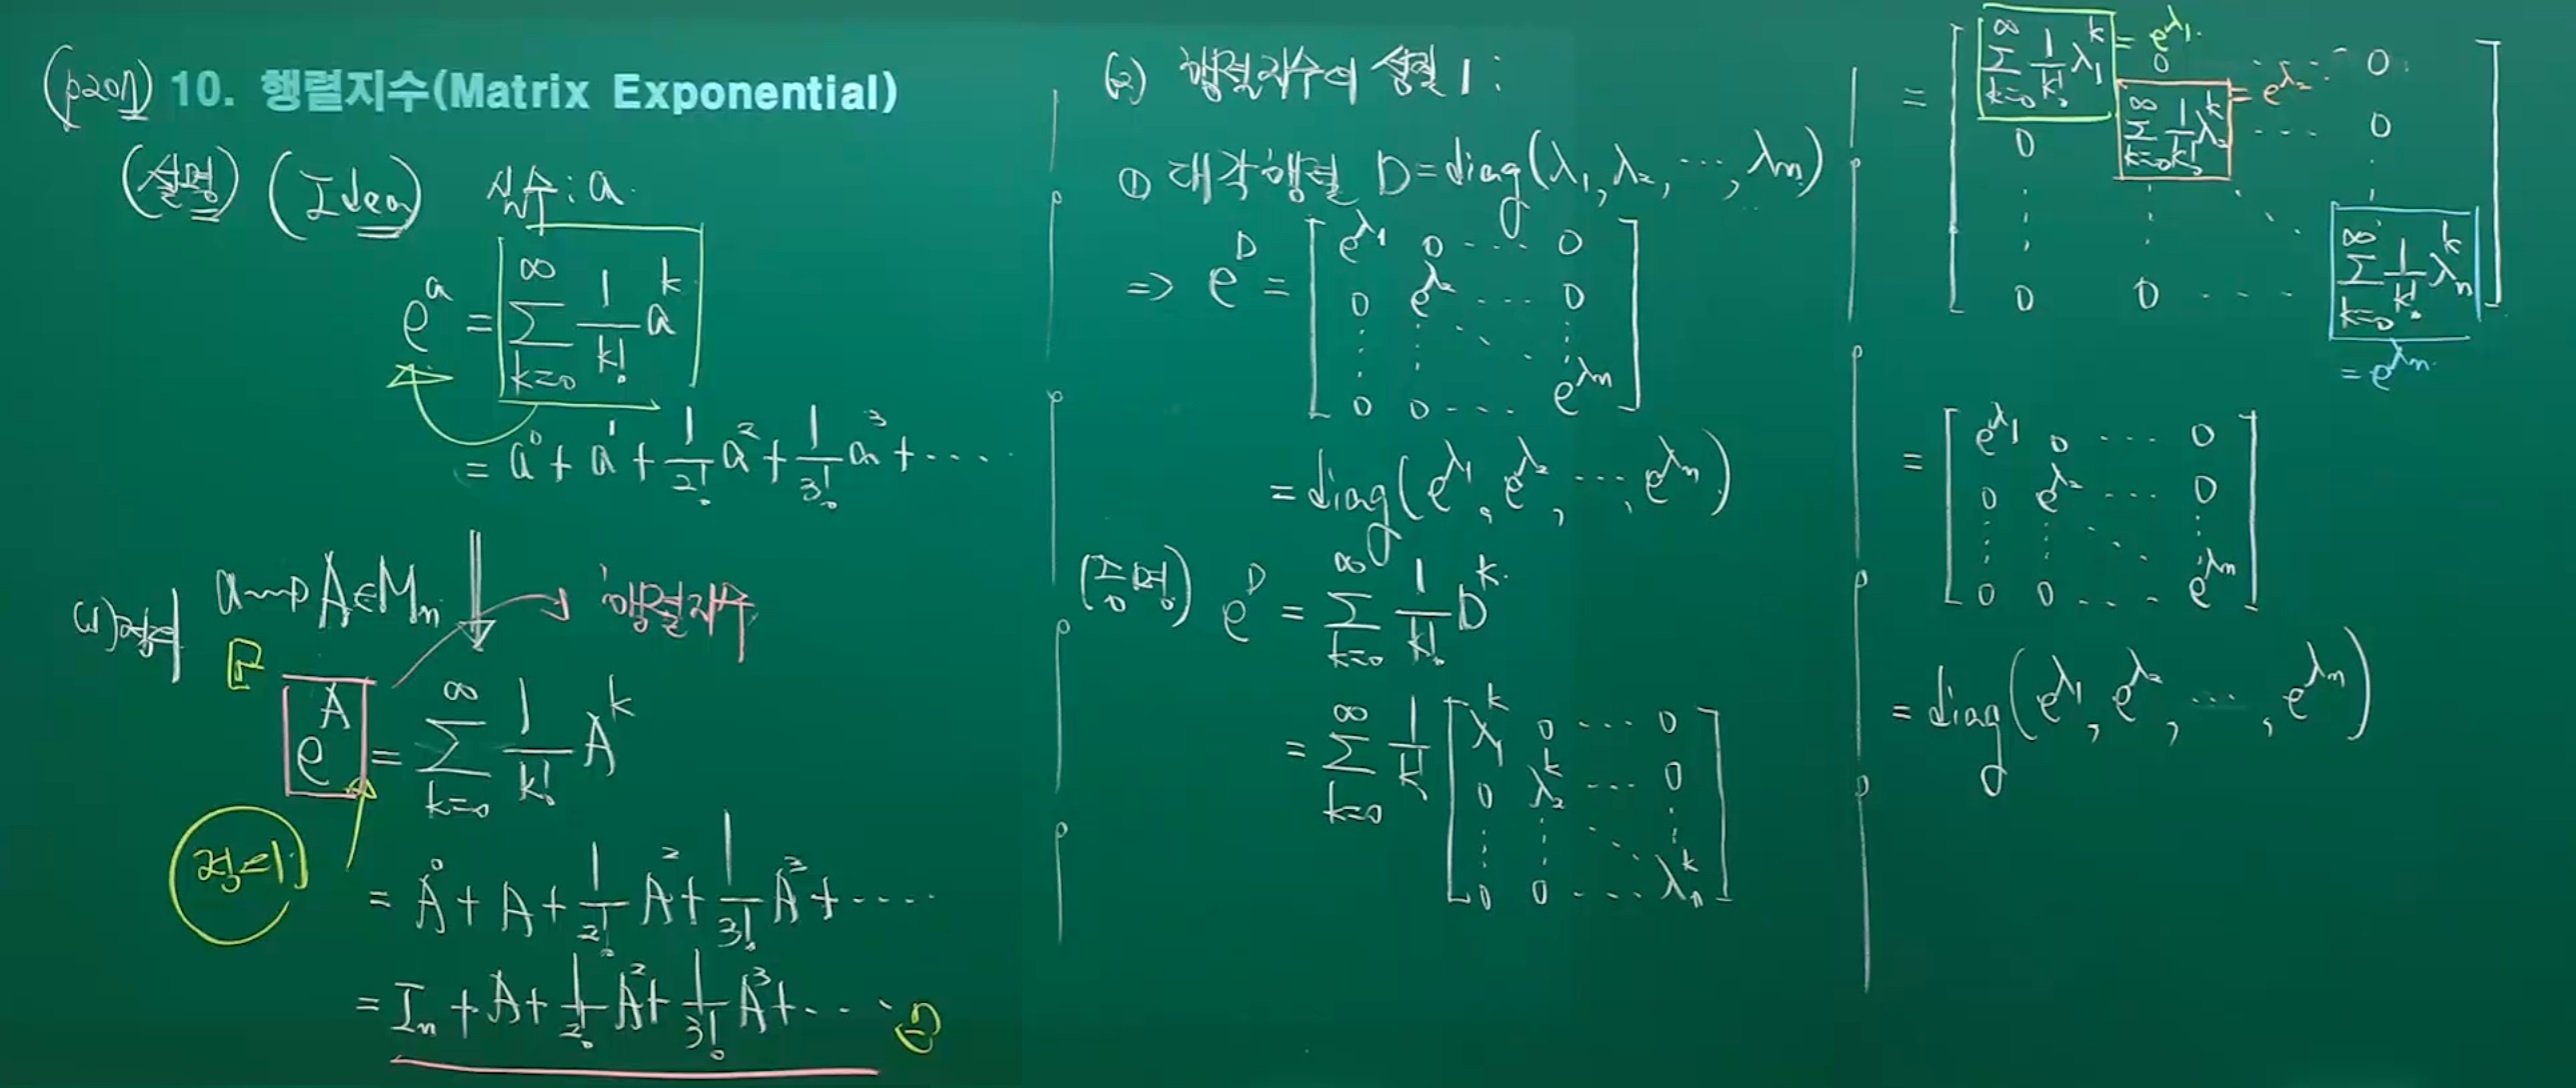 (p207) 10. 행렬지수(Matrix Exponential)
(설명) (Idea) 실수: a
e^a = ∑_{k=0}^{∞} 1/k! a^k
= a^0 + a^1 + 1/2! a^2 + 1/3! a^3 + ....
(1) 정의 a ⇝ A ∈ M_n ⇓ → 행렬지수
「 e^A = ∑_{k=0}^{∞} 1/k! A^k
정의
= A^0 + A + 1/2! A^2 + 1/3! A^3 + ....
= I_n + A + 1/2! A^2 + 1/3! A^3 + ... 」
(2) 행렬지수의 성질 1 :
① 대각행렬 D = diag(λ_1, λ_2, ..., λ_n)
⇒ e^D = [ e^{λ_1} 0 .... 0
0 e^{λ_2} .... 0
⋮ ⋮ ⋱ ⋮
0 0 .... e^{λ_n} ]
= diag(e^{λ_1}, e^{λ_2}, ..., e^{λ_n})
(증명) e^D = ∑_{k=0}^{∞} 1/k! D^k
= ∑_{k=0}^{∞} 1/k! [ λ_1^k 0 .... 0
0 λ_2^k .... 0
⋮ ⋮ ⋱ ⋮
0 0 .... λ_n^k ]
= [ ∑_{k=0}^{∞} 1/k! λ_1^k = e^{λ_1} 0 .... 0
0 ∑_{k=0}^{∞} 1/k! λ_2^k = e^{λ_2} .... 0
⋮ ⋮ ⋱ ⋮
0 0 .... ∑_{k=0}^{∞} 1/k! λ_n^k ]
= e^{λ_n}
= [ e^{λ_1} 0 .... 0
0 e^{λ_2} .... 0
⋮ ⋮ ⋱ ⋮
0 0 .... e^{λ_n} ]
= diag(e^{λ_1}, e^{λ_2}, ..., e^{λ_n})